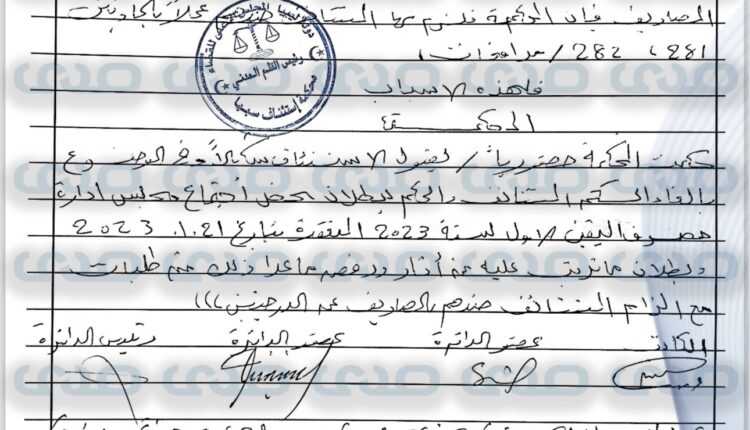 المصاريف فإن المحكمة تلزم بها المستأنف ضدهم عملاً بالمادتين
281 ، 282 / مرافعات ،
فلهذه الاسباب
المحكمة
حكمت المحكمة حضورياً / بقبول الاستئناف شكلاً وفي الموضوع
بالغاء الحكم المستأنف والحكم ببطلان محضر اجتماع مجلس ادارة
مصرف اليقين الاول لسنة 2023 المنعقدة بتاريخ 21 .1. 2023
وبطلان ما ترتب عليه من أثار ورفض ماعدا ذلك من طلبات
مع الزام المستأنف ضدهم بالمصاريف عن الدرجتين )))
الكاتب عضو الدائرة عضو الدائرة رئيس الدائرة
رئيس القلم المدني
محكمة إستئناف سبها